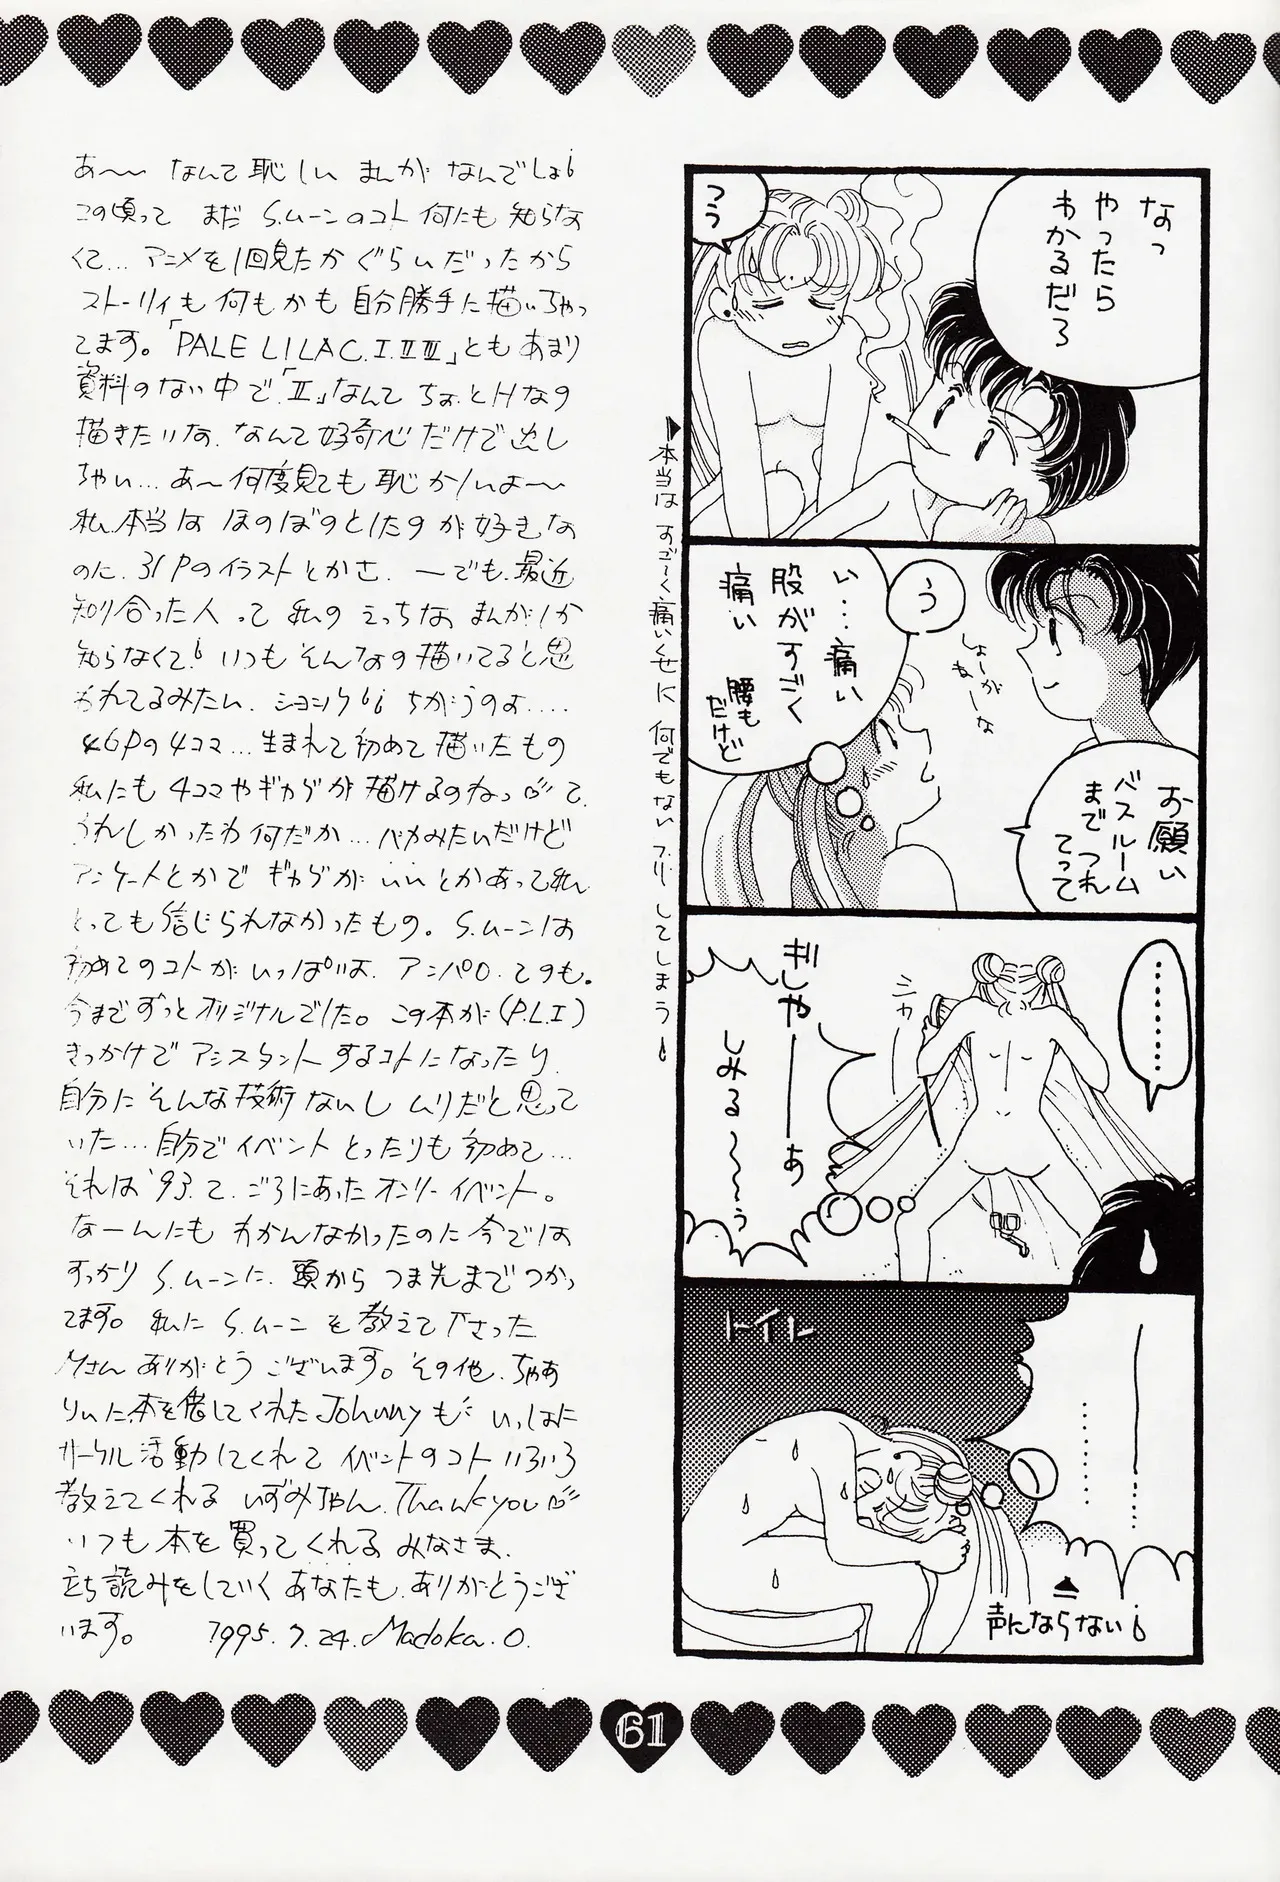 なっ
やったら
わかるだろ
うう
う
い…痛い
股がすごく
痛い
腰も
だけど
しょーが
ねーな
お願い
バスルーム
までつれ
てって
▶本当はすご〜く痛いくせに何でもないフリしてしまう
………
シャカ
ぎしゃーーーぁ
しみる〜〜〜ぅ
トイレ
声にならない
あ〜〜 なんて恥しい まんが なんでしょ
この頃って まだ S.ムーンのコト 何にも 知らな
くて… アニメを1回見たか ぐらいだったから
ストーリィも 何もかも 自分勝手に描いちゃっ
てます。「PALE LILAC.I.II.III」とも あまり
資料のない中で「II」なんて ちょっとHなの
描きたいな. なんて 好奇心だけで 出し
ちゃい… あ〜何度見ても 恥かしいよ〜
私、本当は ほのぼのとしたのが好きな
のに. 31Pのイラストとかさ. ーでも、最近
知り合った人って 私の えっちな まんがしか
知らなくて いつも そんなの描いてると思
われてるみたい. ショック ちがうのよ‥‥
46Pの4コマ… 生まれて初めて描いたもの
私にも 4コマやギャグが描けるのねっ て.
うれしかったわ 何だか… バカみたいだけど
アンケートとかで ギャグが いいとかあって私
とっても信じられなかったもの。 S.ムーンは
初めてのコトが いっぱいよ. アンパロ.ての も.
今までずっとオリジナルでした。 この本が(P.L.I)
きっかけで アシスタントするコトになったり.
自分に そんな技術ないし ムリだと思って
いた… 自分で イベント とったりも 初めて…
それは '93.て. ごろにあったオンリーイベント。
なーんにも わかんなかったのに 今では
すっかり S.ムーンに. 頭から つま先まで つかっ
てます。 私に S.ムーン を教えて下さった
Mさん ありがとう ございます。 その他. ちゃあ
りぃに 本を催してくれた Johnnyも いっしょに
サークル活動してくれて イベントのコト いろいろ
教えてくれる いずみちゃん. Thank you
いつも 本を 買ってくれる みなさま.
立ち読みをしていく あなたも. ありがとうござ
います。 1995.7.24. Madoka.O.
61